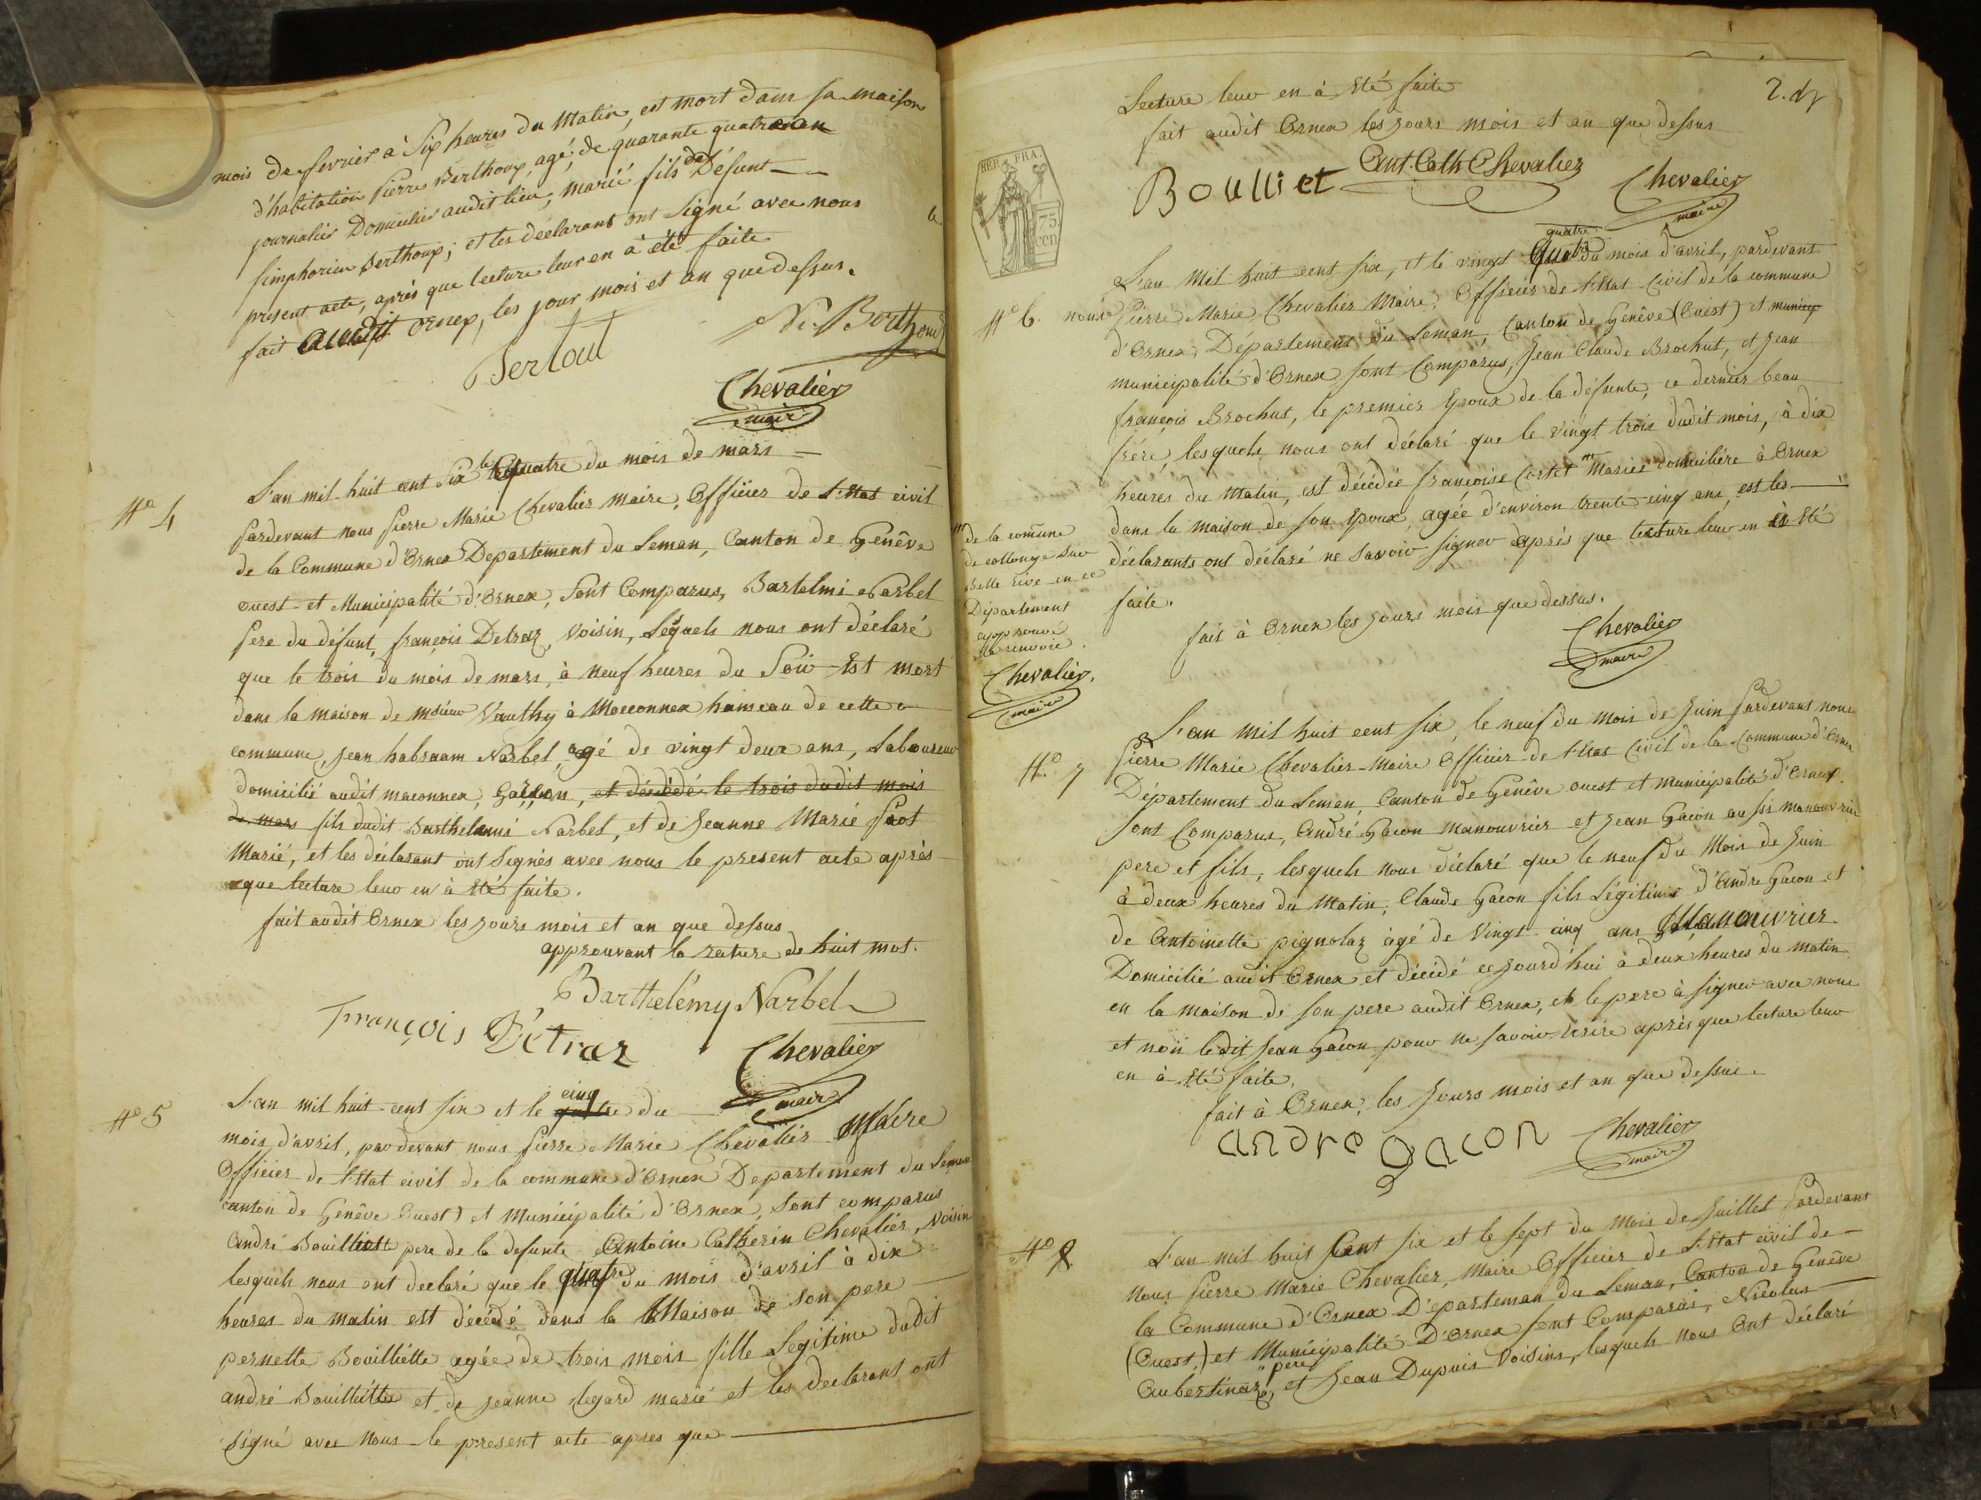 mois de fevrier à Six heures du Matin, est mort dans sa maison
d'habitation Pierre Berthoux, agé, de quarante quatre an
journalier Domicilié audit lieu, marié fils de Défunt
Simphorien Berthoux; et les déclarans ont signé avec nous
présent acte, après que lecture leur en à été faite
fait audit ornex, les jour mois et an que dessus.
Bertout
Chevalier
maire
N° 4
L'an mil huit cent Six le quatre du mois de mars
Pardevant nous Pierre Marie Chevalier Maire, Officier de L'Etat civil
de la Commune d'Ornex Departement du Leman, Canton de Genêve
ouest et Municipalité d'Ornex, Sont Comparus, Bartelmi Narbel
Pere du défunt, françois Detraz, Voisin, Lesquels nous ont déclaré
que le trois du mois de mars, à neuf heures du Soir Est mort
dans la maison de Vauthy à Maconnex hameau de cette
commune, Jean Narbel, agé de vingt deux ans, Laboureur
domicilié audit maconnex, Garçon, et décédé le trois dudit mois
de mars fils dudit Barthelemi Narbel, et de Jeanne Marie
Marié, et les déclarant ont Signés avec nous le present acte après
que lecture leur en à Eté faite.
fait audit Ornex les jours mois et an que dessus
approuvant la rature de huit mot.
Barthelémy Narbel
François Détraz
Chevalier
maire
N° 5
L'an mil huit cent six et le cinq du
mois d'avril, par devant nous Pierre Marie Chevalier Maire
Officier de L'Etat civil de la commune d'Ornex Departement du Leman
canton de Genêve Ouest) et Municipalité d'Ornex, Sont comparus
André Bouilliet pere de la defunte Antoine Catherin Chevalier, Voisin
lesquels nous ont declaré que le quatre du mois d'avril à dix
heures du matin est décédé dans la Maison de Son pere
pernette Bouilliette agée de trois mois fille Legitime dudit
andré Bouilliette et de Jeanne marié et les declarant ont
signé avec Nous le present acte apres que
2.
Lecture leur en à Eté faite
fait audit Ornex les jours mois et an que dessus
REP. FRA.
75
cen
Boulliet
Ant. Cath Chevalier
Chevalier
maire
N° 6.
quatre
L'an Mil huit cent six, et le vingt quatre du mois d'avril, pardevant
nous Pierre Marie Chevalier Maire, Officier de l'Etat Civil de la commune
d'Ornex, Département du Leman, Canton de Genêve (Ouest) et municip
municipalité d'Ornex sont Comparus, Jean Claude Brochut, et Jean
françois Brochut, le premier Epoux de la défunte, ce dernier beau
frère, lesquels nous ont déclaré que le vingt trois dudit mois, à dix
heures du Matin, est décédée françoise Cortet Mariée domiciliére à Ornex
dans la maison de son Epoux, agée d'environ trente cinq ans, est les
déclarants ont déclaré ne Savoir signer après que lecture leur en à Eté
faite.
fait à Ornex les jours mois que dessus.
Chevalier
maire
de la comune
de collonge sur
Belle rive en ce
Département
approuvé
le renvoie.
Chevalier.
maire
N° 7
L'an mil huit cent six, le neuf du mois de Juin Pardevant nous
Pierre Marie Chevalier Maire Officier de l'Etat Civil de la Commune d'Ornex
Département du Leman, Canton de Genêve ouest et municipalité d'Ornex.
sont Comparus, André Gacon Manouvrier et Jean Gacon aussi manouvrier
pere et fils, lesquels nous déclaré que le neuf du Mois de Juin
à deux heures du Matin, Claude Gacon fils Légitime d'André Gacon et
de Antoinette pignolaz agé de Vingt cinq ans Manouvrier
Domicilié audit Ornex et décédé ce jourd'hui à deux heures du matin
en la maison de son pere audit Ornex, et le pere à signer avec nous
et non ledit Jean Gacon pour ne savoir Ecrire après que lecture leur
en à Eté faite.
fait à Ornex, les Jours mois et an que dessus.
andre gacon
Chevalier
maire
N° 8
L'an mil huit Cent six et le sept du Mois de Juillet Pardevant
Nous Pierre Marie Chevalier, Maire Officier de L'Etat civil de
la Commune d'Ornex Departeman du Leman, Canton de Genêve
(Ouest,) et Municipalité D'Ornex sont Comparus, Nicolas
pere
Aubertinaz, et Jean Dupuis Voisins, lesquels Nous Ont déclaré